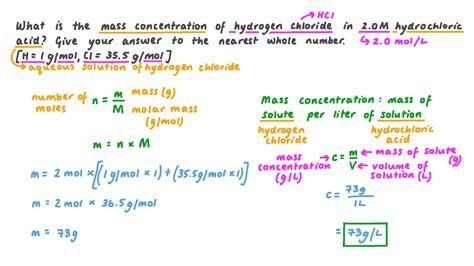 What is the mass concentration of hydrogen chloride in 2.0M hydrochloric
HCl
acid? Give your answer to the nearest whole number.
2.0 mol/L
[H = 1 g/mol, Cl = 35.5 g/mol]
aqueous solution of hydrogen chloride
number of moles n = m/M mass (g)
molar mass (g/mol)
m = n × M
m = 2 mol × [(1 g/mol × 1) + (35.5 g/mol × 1)]
m = 2 mol × 36.5 g/mol
m = 73g
Mass concentration: mass of
solute per liter of solution
hydrogen chloride
hydrochloric acid
mass concentration (g/L) c = m/V mass of solute (g)
volume of solution (L)
c = 73g/1L
= 73 g/L